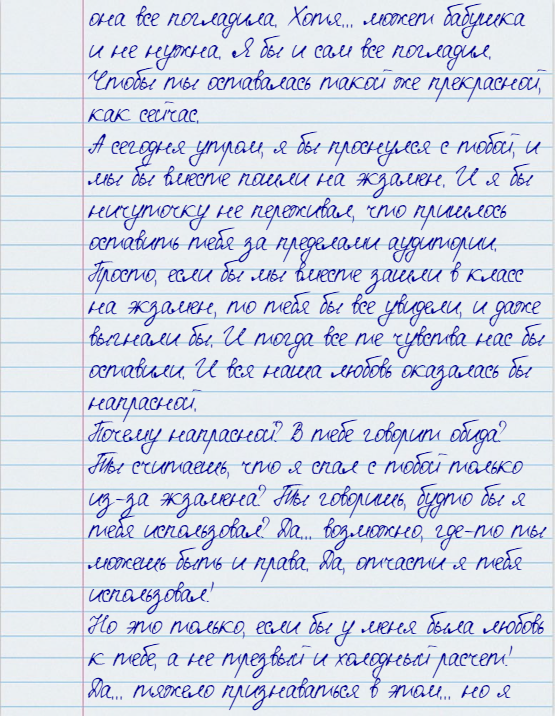 она все погладила. Хотя... может бабушка
и не нужна. Я бы и сам все погладил.
Чтобы ты оставалась такой же прекрасной,
как сейчас.
А сегодня утром, я бы проснулся с тобой, и
мы бы вместе пошли на экзамен. И я бы
ничуточку не переживал, что пришлось
оставить тебя за пределами аудитории.
Просто, если бы мы вместе зашли в класс
на экзамен, то тебя бы все увидели, и даже
выгнали бы. И тогда все те чувства нас бы
оставили. И вся наша любовь оказалась бы
напрасной.
Почему напрасной? В тебе говорит обида?
Ты считаешь, что я спал с тобой только
из-за экзамена? Ты говоришь, будто бы я
тебя использовал? Да... возможно, где-то ты
можешь быть и права. Да, отчасти я тебя
использовал!
Но это только, если бы у меня была любовь
к тебе, а не трезвый и холодный расчет!
Да... тяжело признаваться в этом... но я